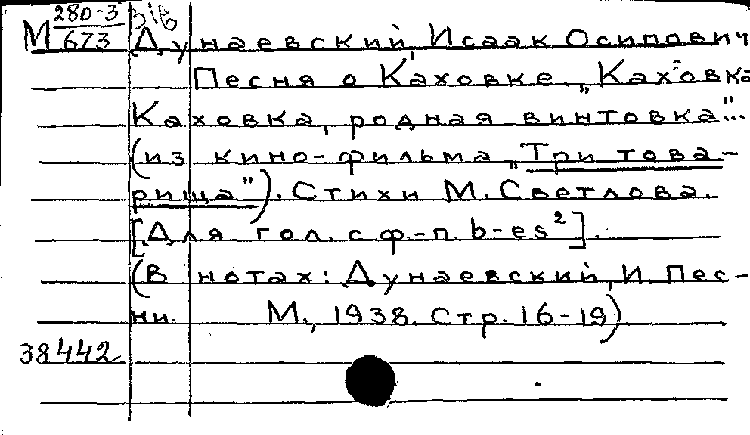 М 280-3/673 316
Дунаевский, Исаак Осипович
Песня о Каховке „Каховка
Каховка, родная винтовка"...
(из кино-фильма „Три това-
рища"). Стихи М. Светлова.
[Для гол. с ф-п. b-es²].
(В нотах: Дунаевский, И. Пес-
ни. М., 1938. Стр. 16-19)
38442